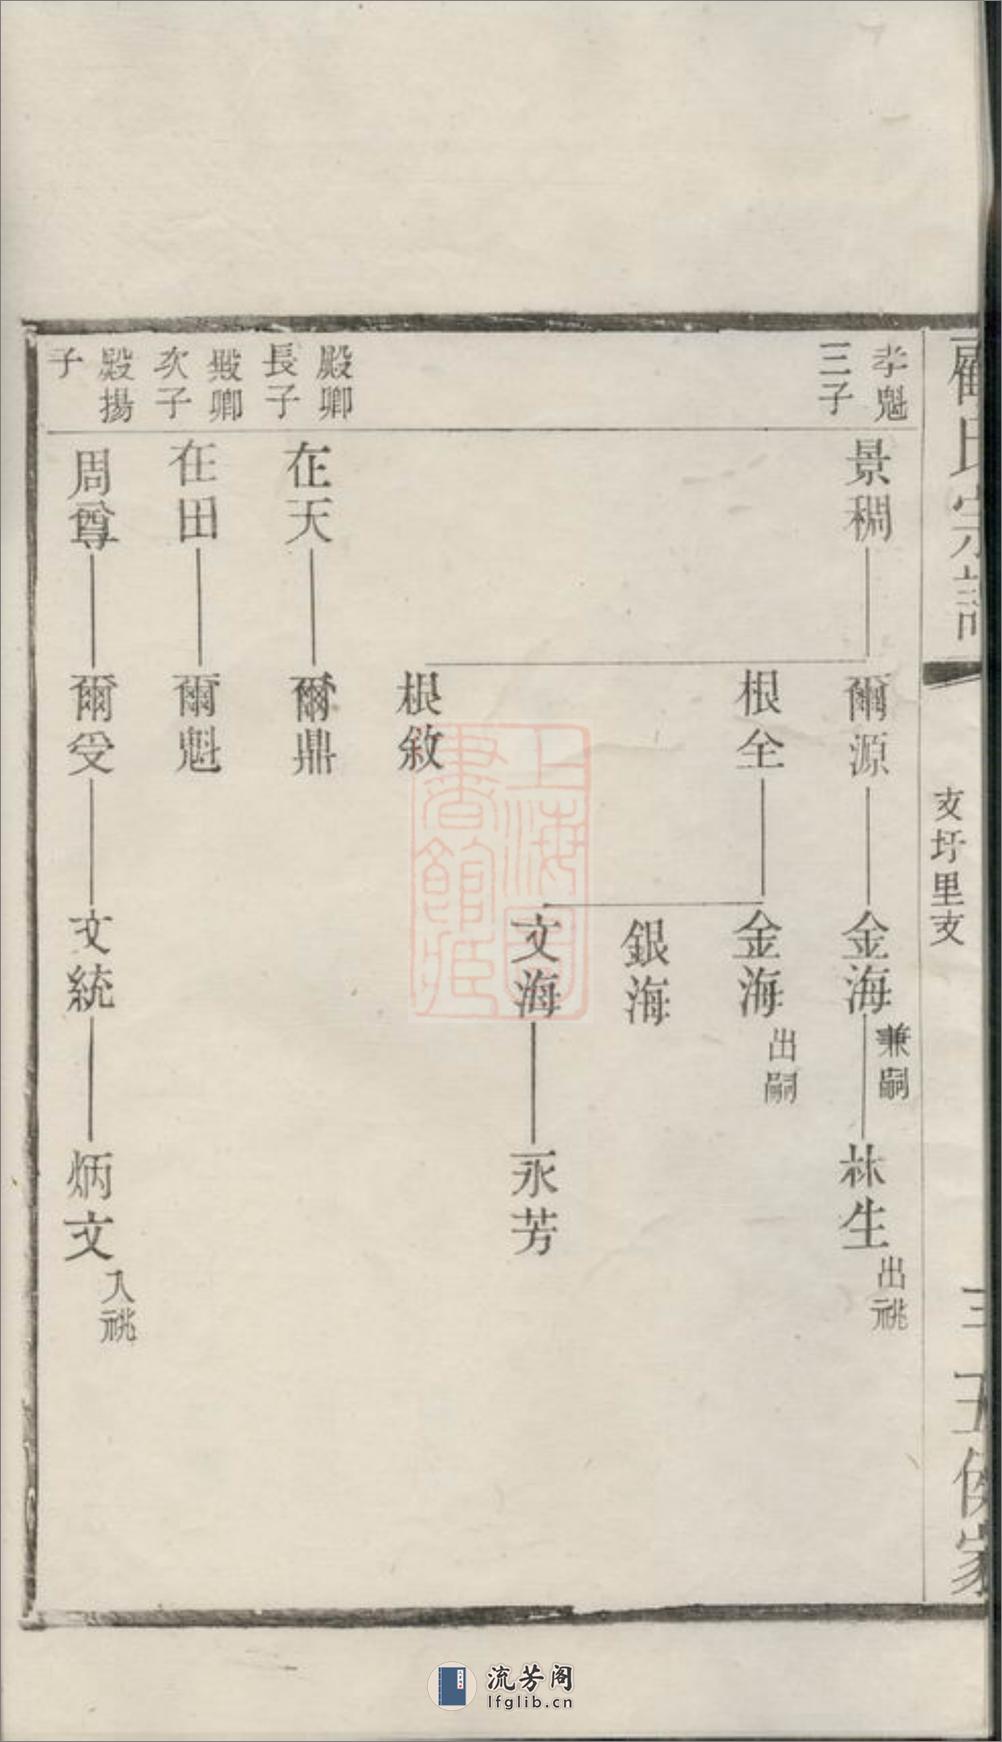 顧氏宗譜
支圩里支
三
五侯家
孝魁
三子
景稠
爾源
金海
兼嗣
林生
出祧
根全
金海
出嗣
銀海
文海
永芳
根敘
殿卿
長子
在天
爾鼎
殿卿
次子
在田
爾魁
殿揚
子
周尊
爾受
文統
炳文
入祧
上海圖
書館藏
流芳阁
lfglib.cn